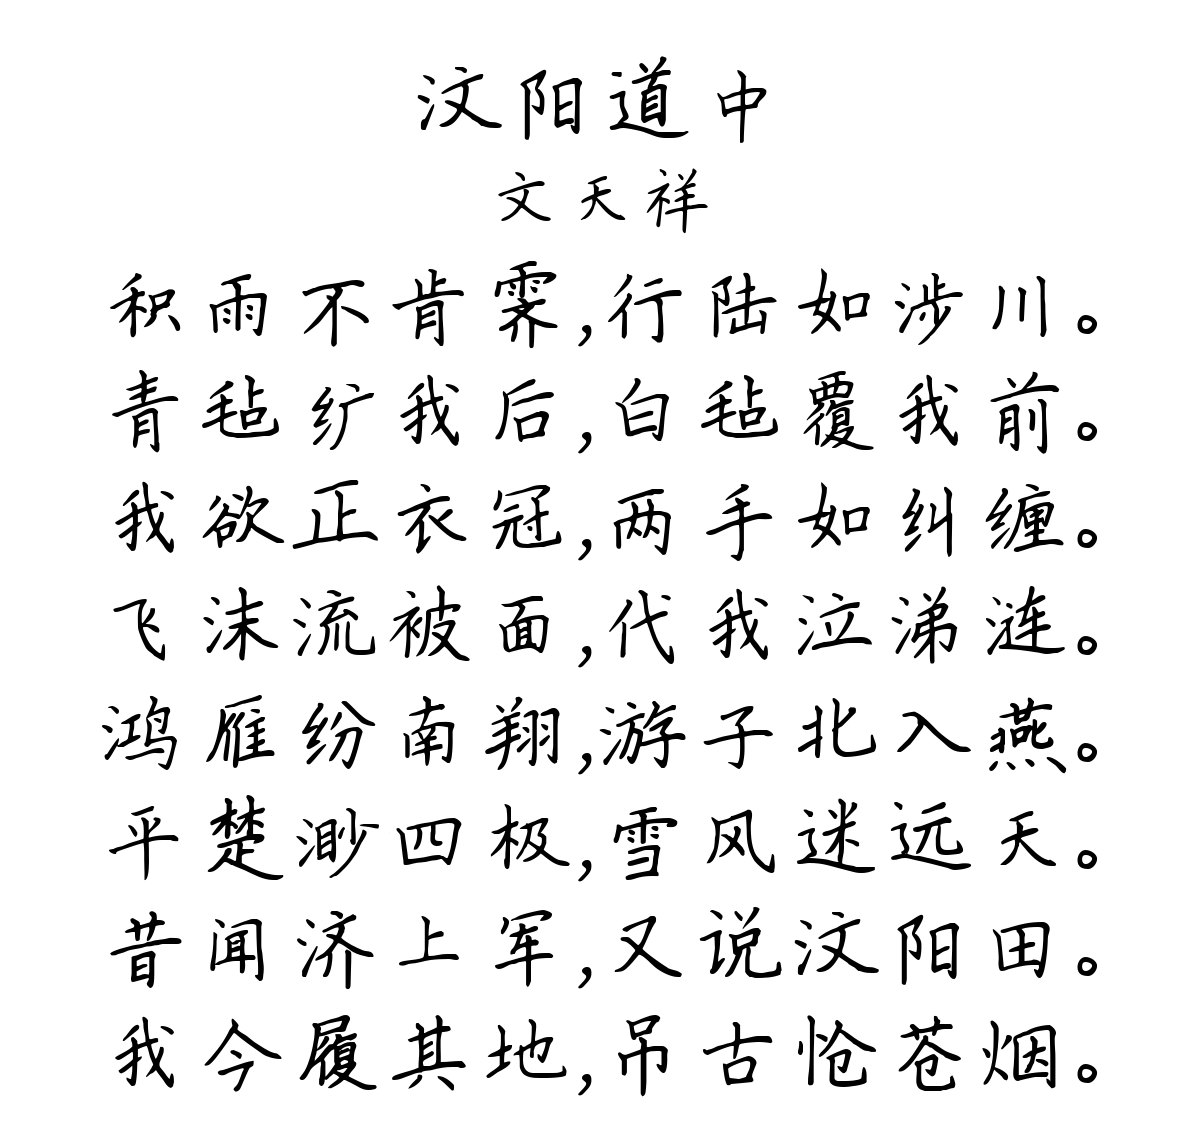 汶阳道中
文天祥
积雨不肯霁,行陆如涉川。
青毡纩我后,白毡覆我前。
我欲正衣冠,两手如纠缠。
飞沫流被面,代我泣涕涟。
鸿雁纷南翔,游子北入燕。
平楚渺四极,雪风迷远天。
昔闻济上军,又说汶阳田。
我今履其地,吊古怆苍烟。